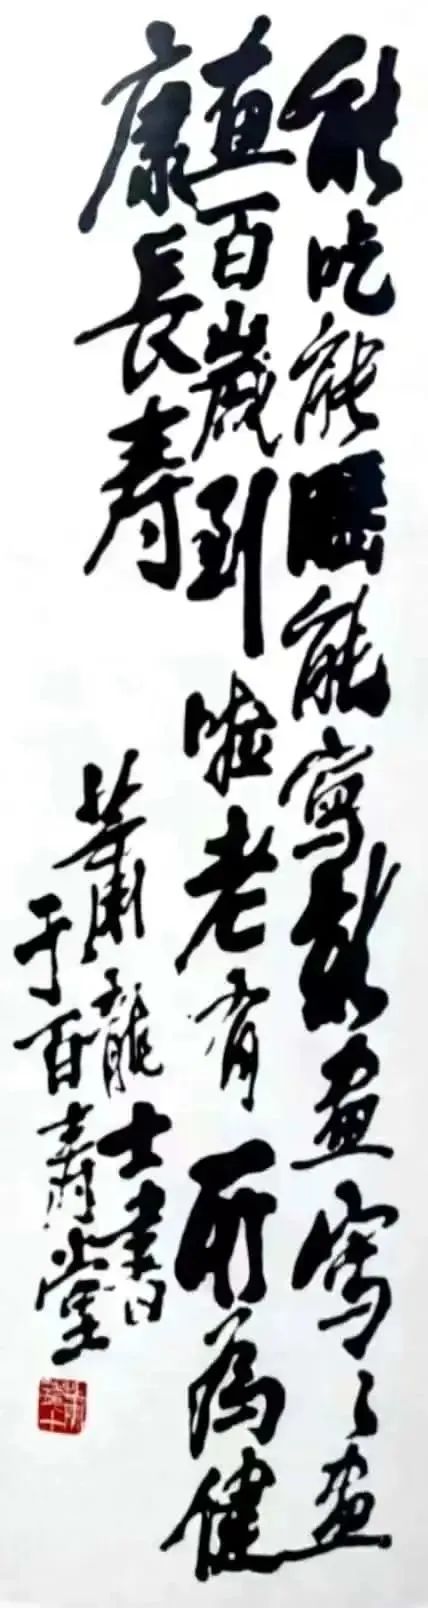 能吃能睏能寫能畫寫々畫
畫百歲到啦老有所為健
康長壽
蕭龍士書
于百壽堂